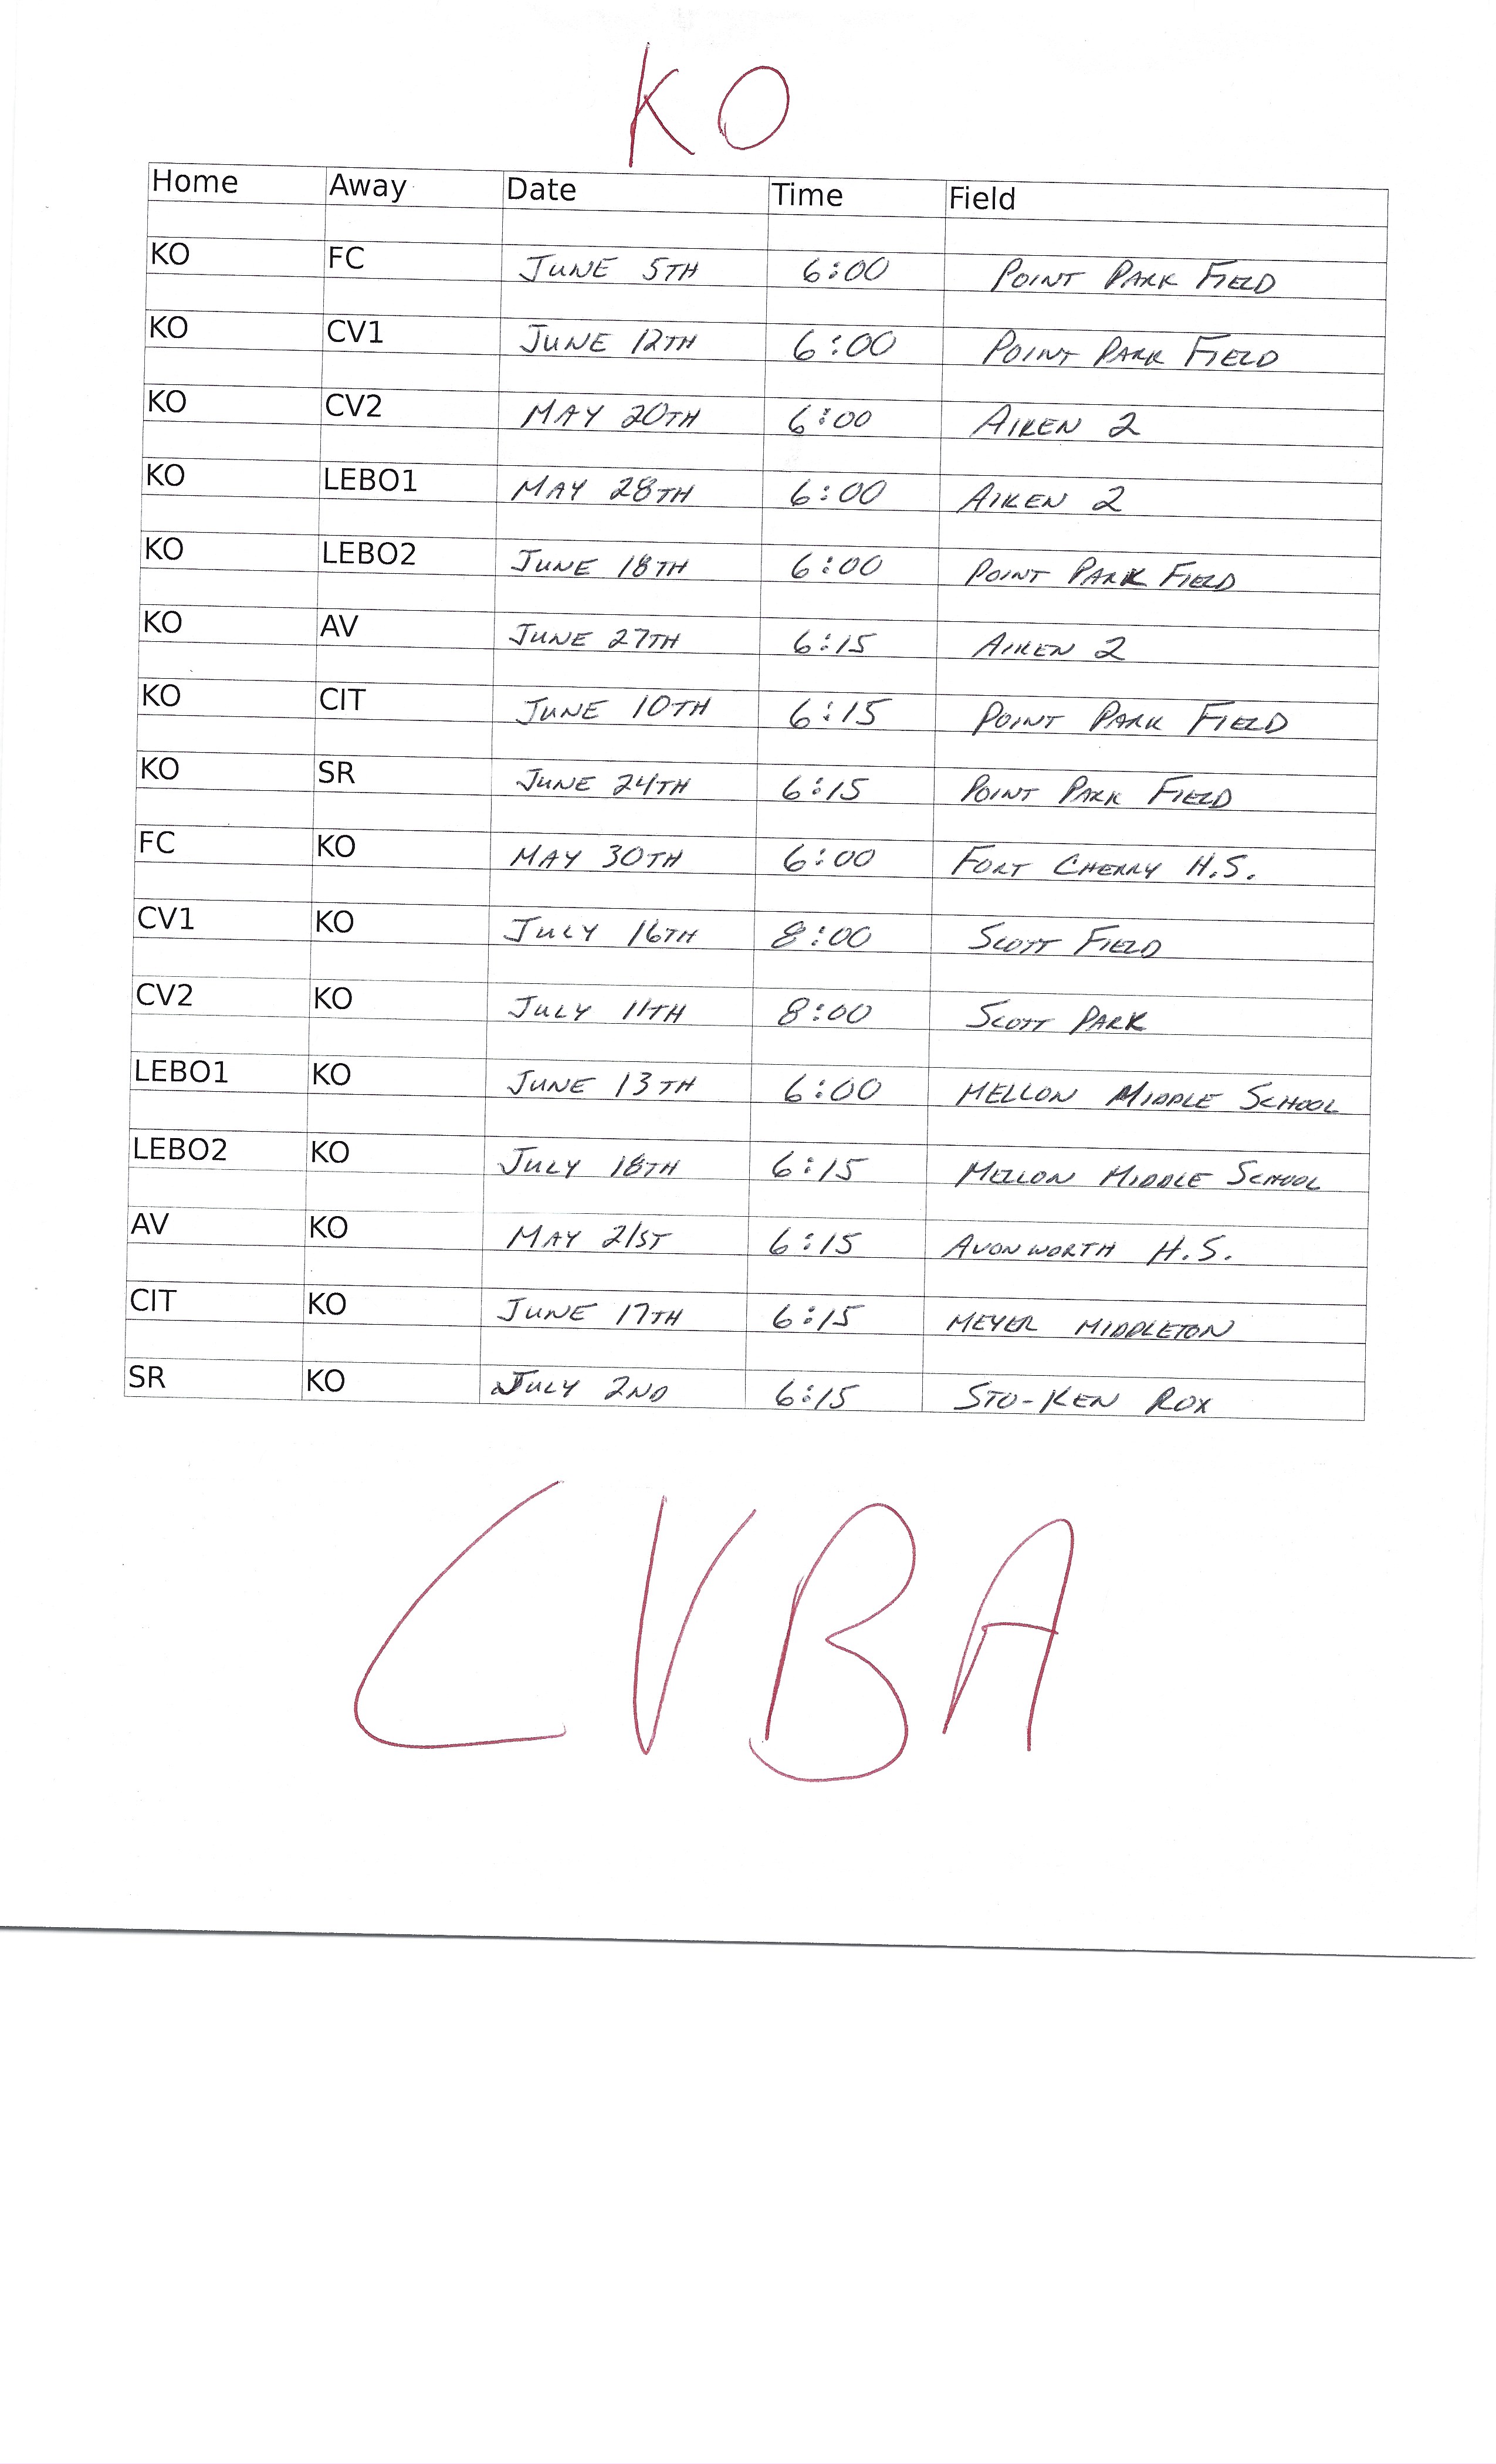 KO
Home Away Date Time Field
KO FC JUNE 5TH 6:00 POINT PARK FIELD
KO CV1 JUNE 12TH 6:00 POINT PARK FIELD
KO CV2 MAY 20TH 6:00 AIKEN 2
KO LEBO1 MAY 28TH 6:00 AIKEN 2
KO LEBO2 JUNE 18TH 6:00 POINT PARK FIELD
KO AV JUNE 27TH 6:15 AIKEN 2
KO CIT JUNE 10TH 6:15 POINT PARK FIELD
KO SR JUNE 24TH 6:15 POINT PARK FIELD
FC KO MAY 30TH 6:00 FORT CHERRY H.S.
CV1 KO JULY 16TH 8:00 SCOTT FIELD
CV2 KO JULY 11TH 8:00 SCOTT PARK
LEBO1 KO JUNE 13TH 6:00 MELLON MIDDLE SCHOOL
LEBO2 KO JULY 18TH 6:15 MELLON MIDDLE SCHOOL
AV KO MAY 21ST 6:15 AVONWORTH H.S.
CIT KO JUNE 17TH 6:15 MEYER MIDDLETON
SR KO JULY 2ND 6:15 STO-KEN ROX
CVBA